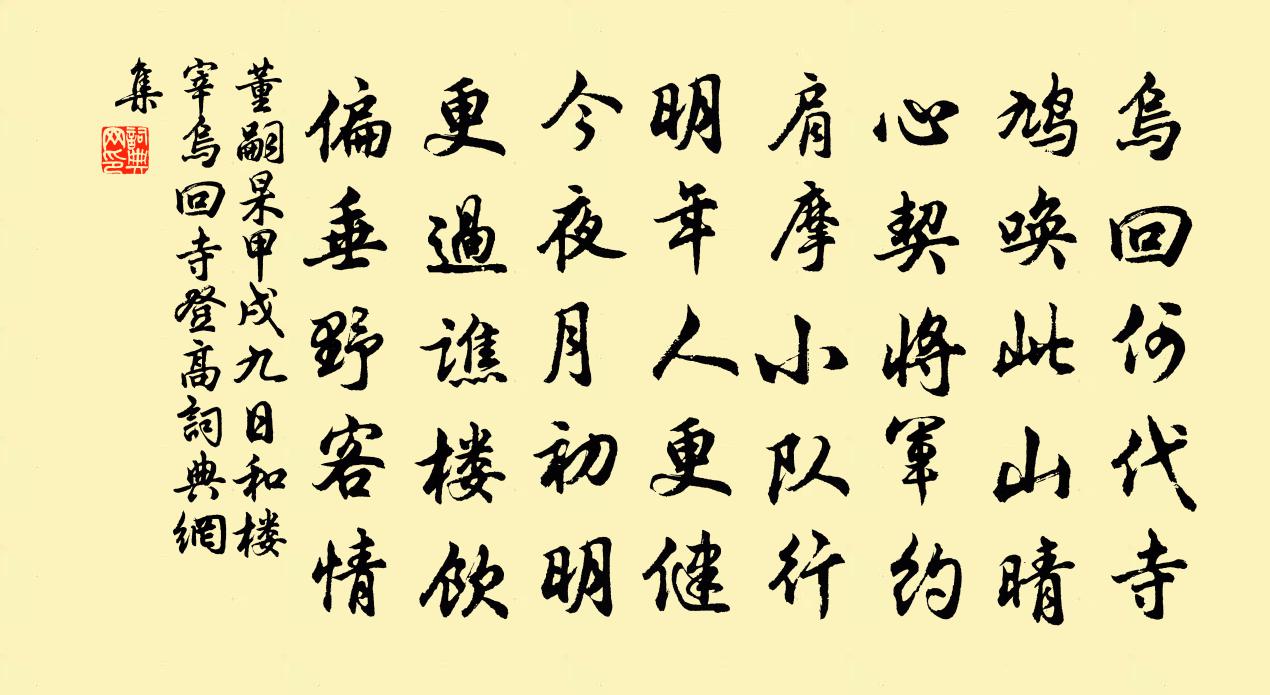 烏回何代寺
鳩喚此山晴
心契將軍約
肩摩小队行
明年人更健
今夜月初明
更過譙楼飲
偏垂野客情
董嗣杲甲戌九日和楼
宰烏回寺登高詞典網
集
詞典
网印